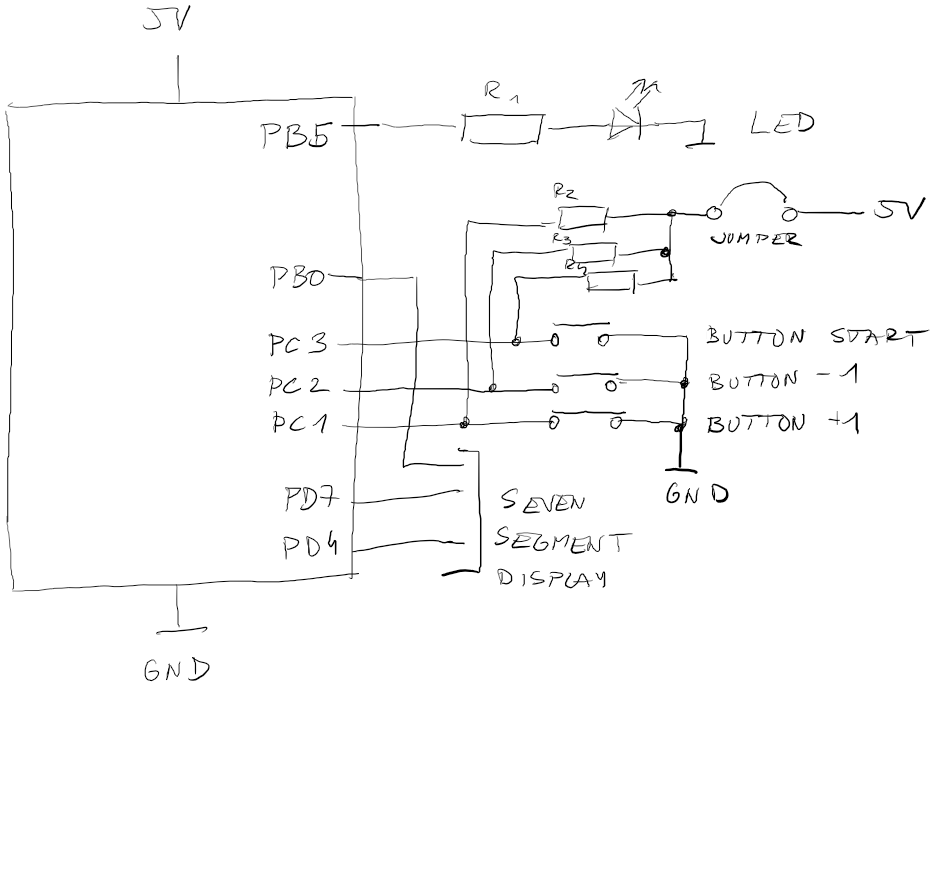 5V
R1
PB5
LED
R2
5V
JUMPER
R3
R4
PB0
PC3
BUTTON START
PC2
BUTTON -1
PC1
BUTTON +1
GND
PD7
SEVEN
PD4
SEGMENT
DISPLAY
GND